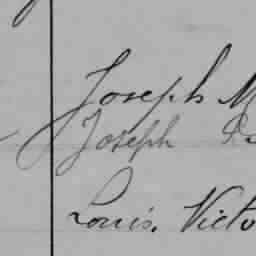 Joseph M
Joseph
Louis. Victo